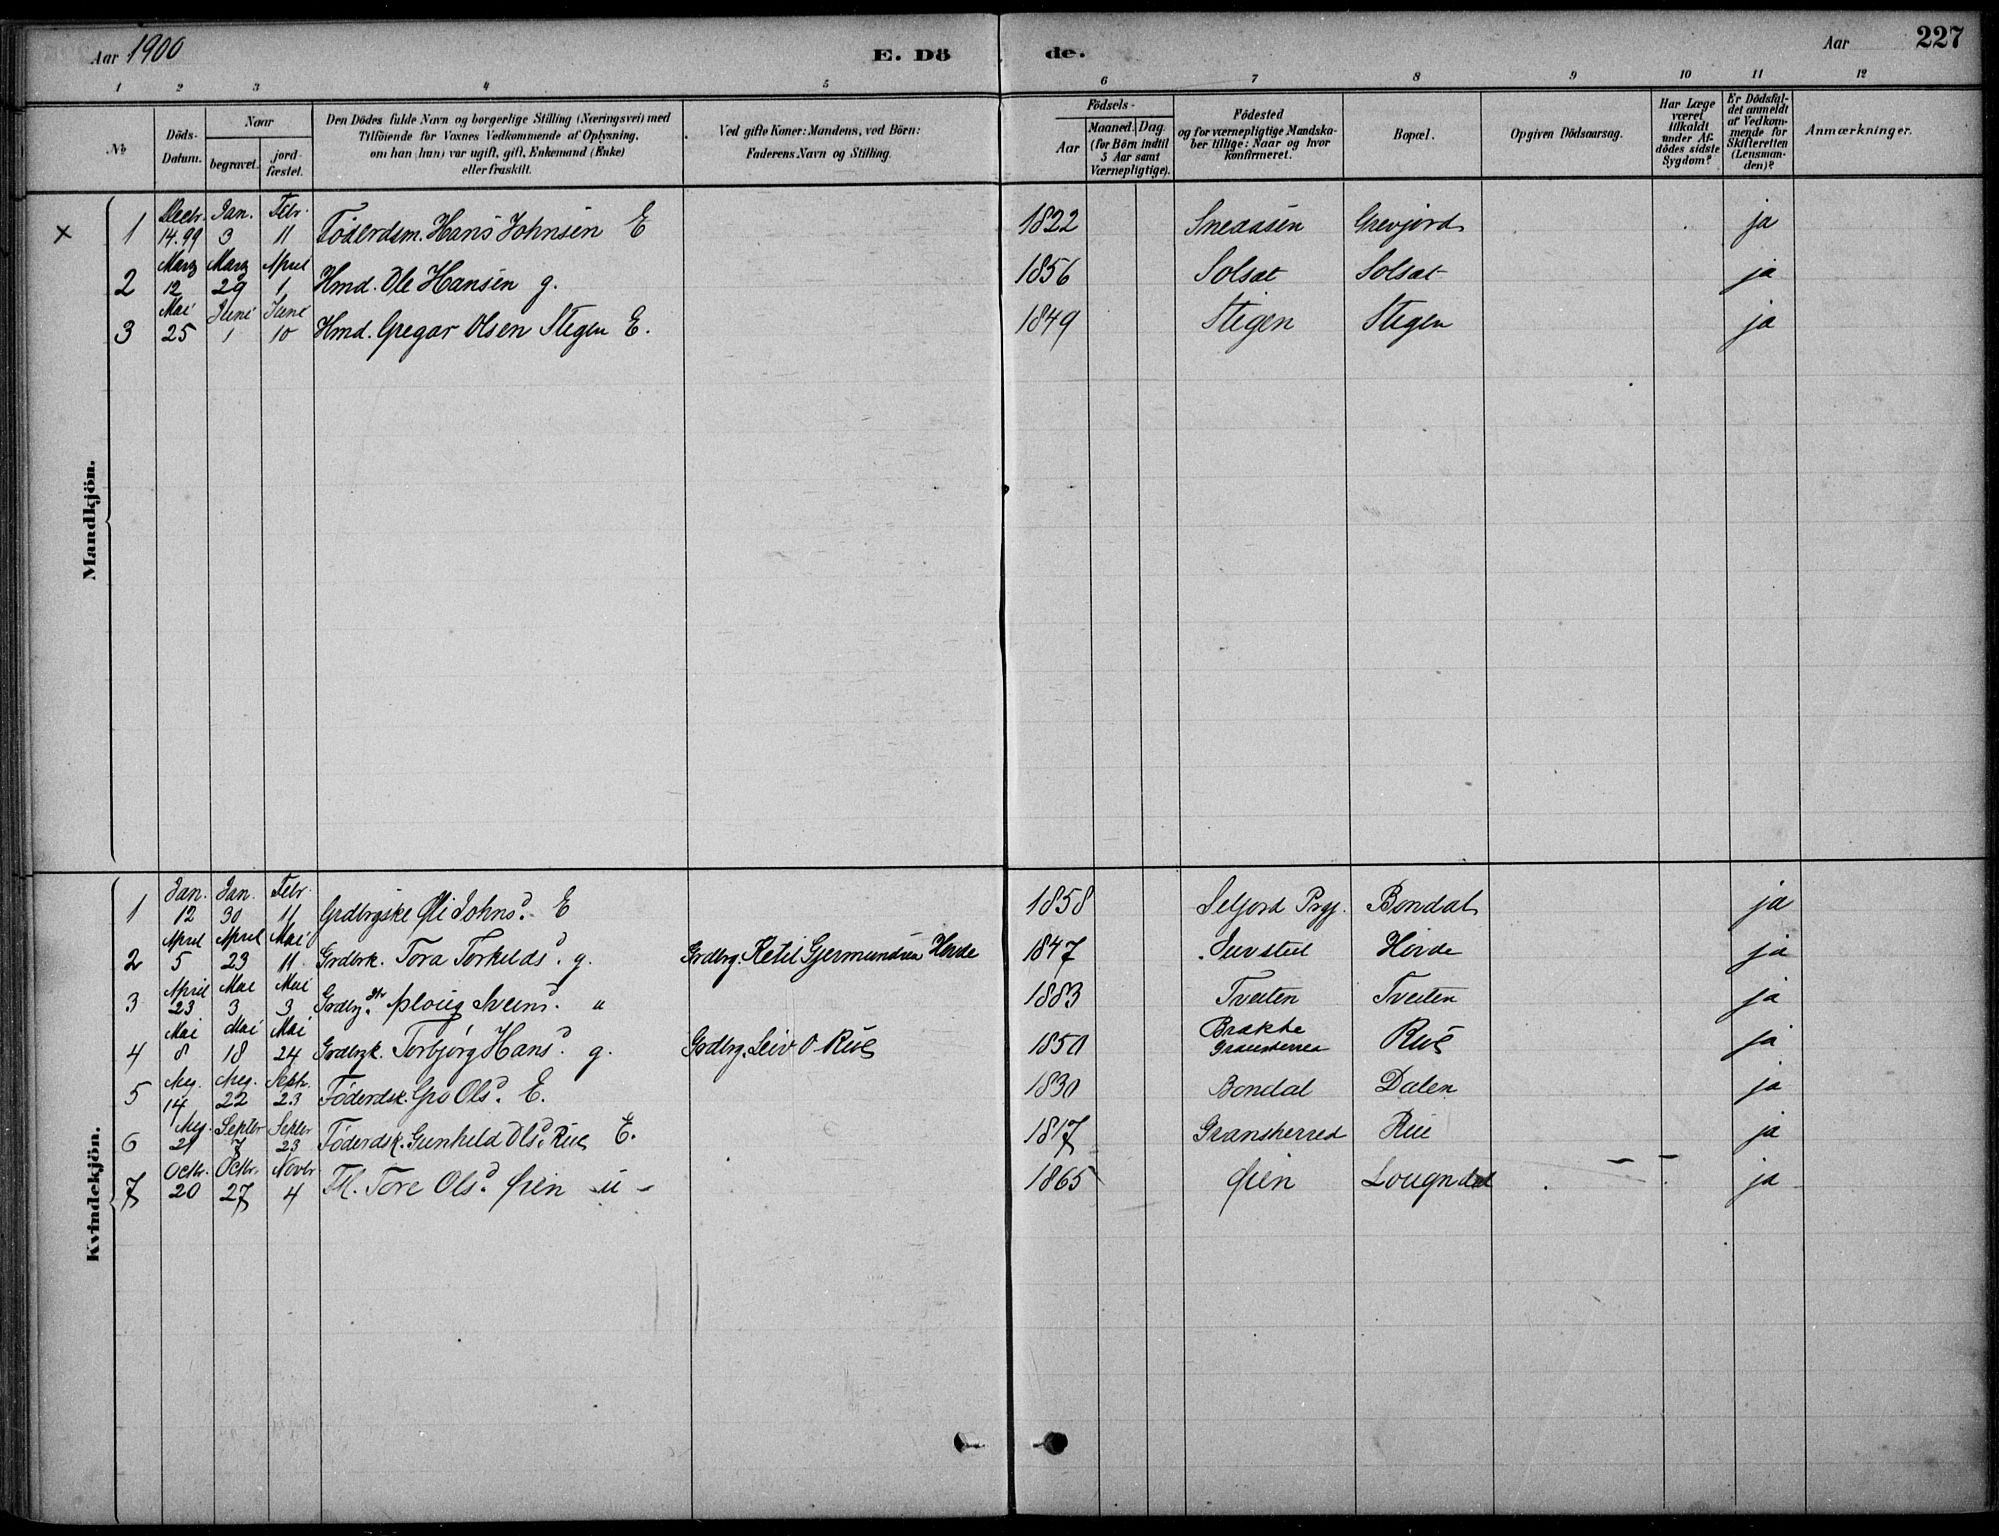 Aar 1900 E. Dö de. Aar 227
1 2 3 4 5 6 7 8 9 10 11 12
№
Döds-Datum.
Naar
begravet. jordfæstet.
Den Dödes fulde Navn og borgerlige Stilling (Næringsvei) med
Tilföiende for Voxnes Vedkommende af Oplysning,
om han (hun) var ugift, gift, Enkemand (Enke)
eller fraskilt.
Ved gifte Koner: Mandens, ved Börn:
Faderens Navn og Stilling.
Födsels-
Aar
Maaned. Dag.
(for Börn indtil
5 Aar samt
Værnepligtige).
Födested
og for værnepligtige Mandska-
ber tillige: Naar og hvor
konfirmeret.
Bopæl.
Opgiven Dödsaarsag.
Har Læge
været
tilkaldt
under Af-
dödes sidste
Sygdom?
Er Dödsfal-
det anmeldt
af Vedkom-
mende for
Skifteretten
(Lensman-
den)?
Anmærkninger.
Mandkjön.
x 1 Decbr. 14.99 Jan. 3 Febr. 11 Föderdsm. Hans Johnsen E 1822 Sneaasen Grevjord ja
2 Marz 12 Marz 29 April 1 Hmd. Ole Hansen g. 1856 Solsat Solsat ja
3 Mai 25 Juni 1 Juni 10 Hmd. Gregar Olsen Stegen E. 1849 Stigen Stegen ja
Kvindekjön.
1 Jan. 12 Jan. 30 Febr. 11 Grdbrgske Øli Johnsd. E 1858 Seljord Prgj. Bondal ja
2 April 5 April 23 Mai 11 Grdbrk. Tora Torkelds. g. Grdbrg. Ketil Gjermundsen Hovde 1847 Hovde ja
3 April 23 Mai 3 Mai 3 Grdbg. dtr Aslaug Sveins. u 1883 Tveiten Tveiten ja
4 Mai 8 Mai 18 Mai 24 Grdbrgk. Torbjørg Hansd. g. Grdbrg. Leiv O. Rue 1850 Brække Gransherred Rue ja
5 Aug. 14 Aug. 22 Septr. 23 Föderdsk. Gro Olsd. E. 1830 Bondal Dalen ja
6 Aug. 21 Septbr 7 Septbr 23 Föderdsk. Gunhild Olsd. Rue E. 1817 Gransherred Rue ja
7 Octbr. 20 Octbr. 27 Novbr 4 Fl. Tore Olsd. Øien - u - 1865 Øien Lougndal - - ja